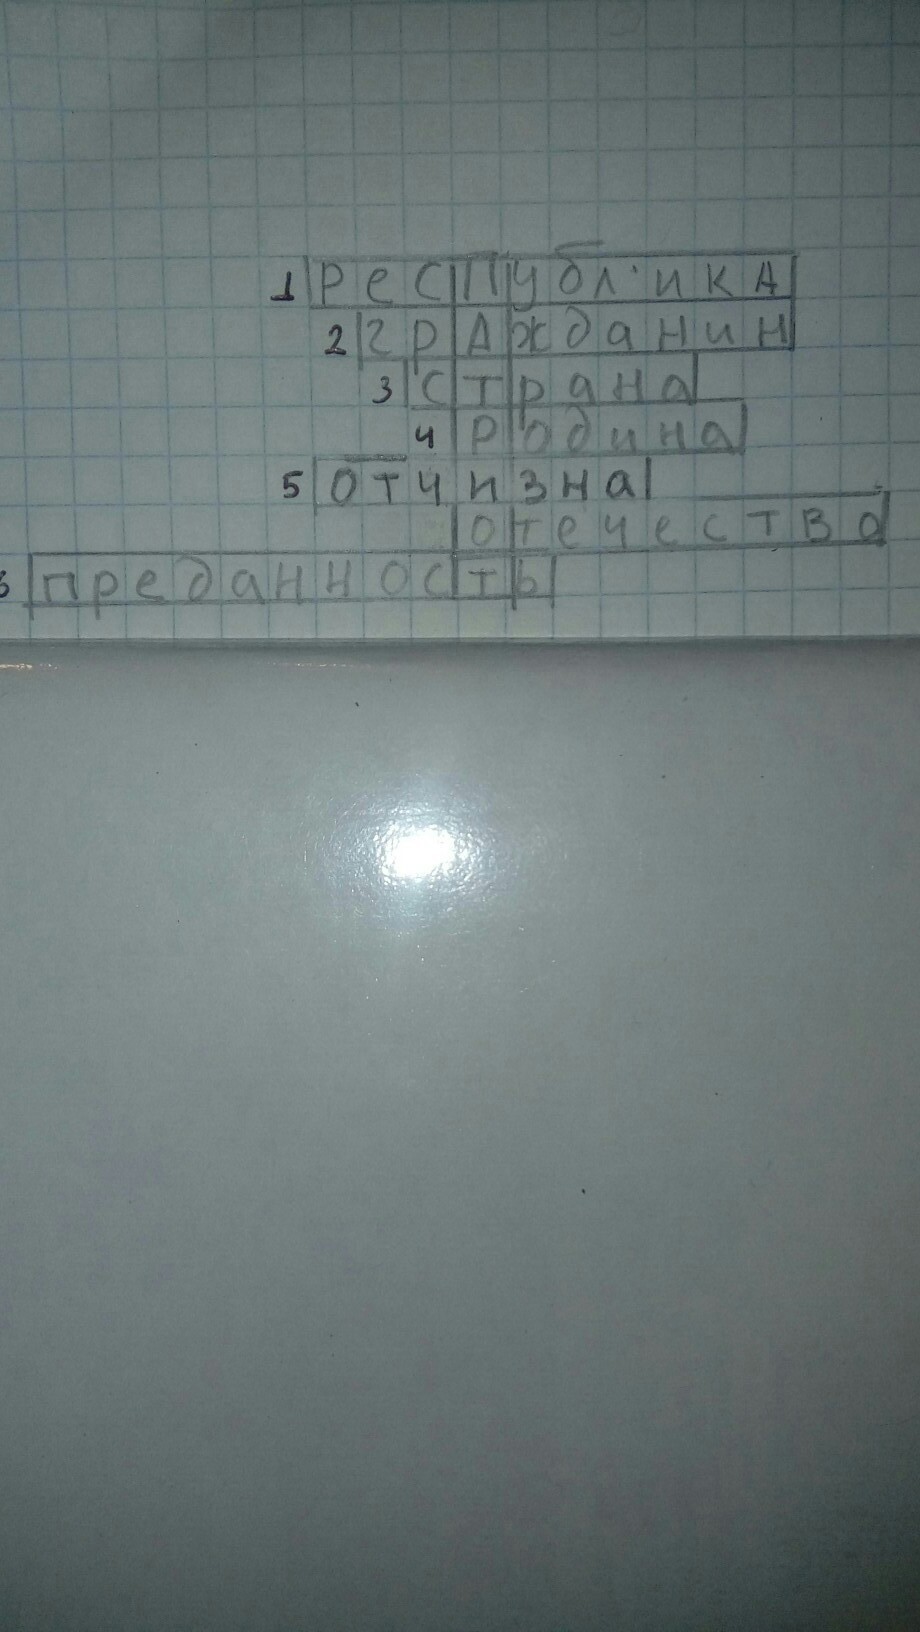 1 РЕСПУБЛИКА
2 ГРАЖДАНИН
3 Страна
4 Родина
5 Отчизна
отечество
6 преданность